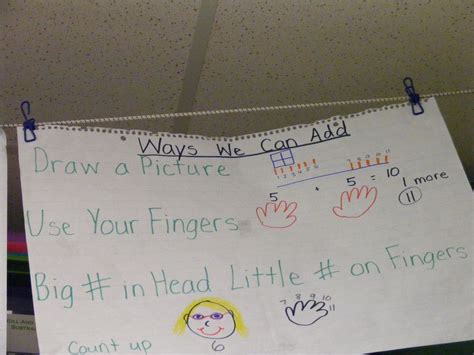 Ways We Can Add
Draw a Picture
5 + 5 = 10
1 more
11
Use Your Fingers
Big # in Head Little # on Fingers
7 8 9 10
11
6
Count up